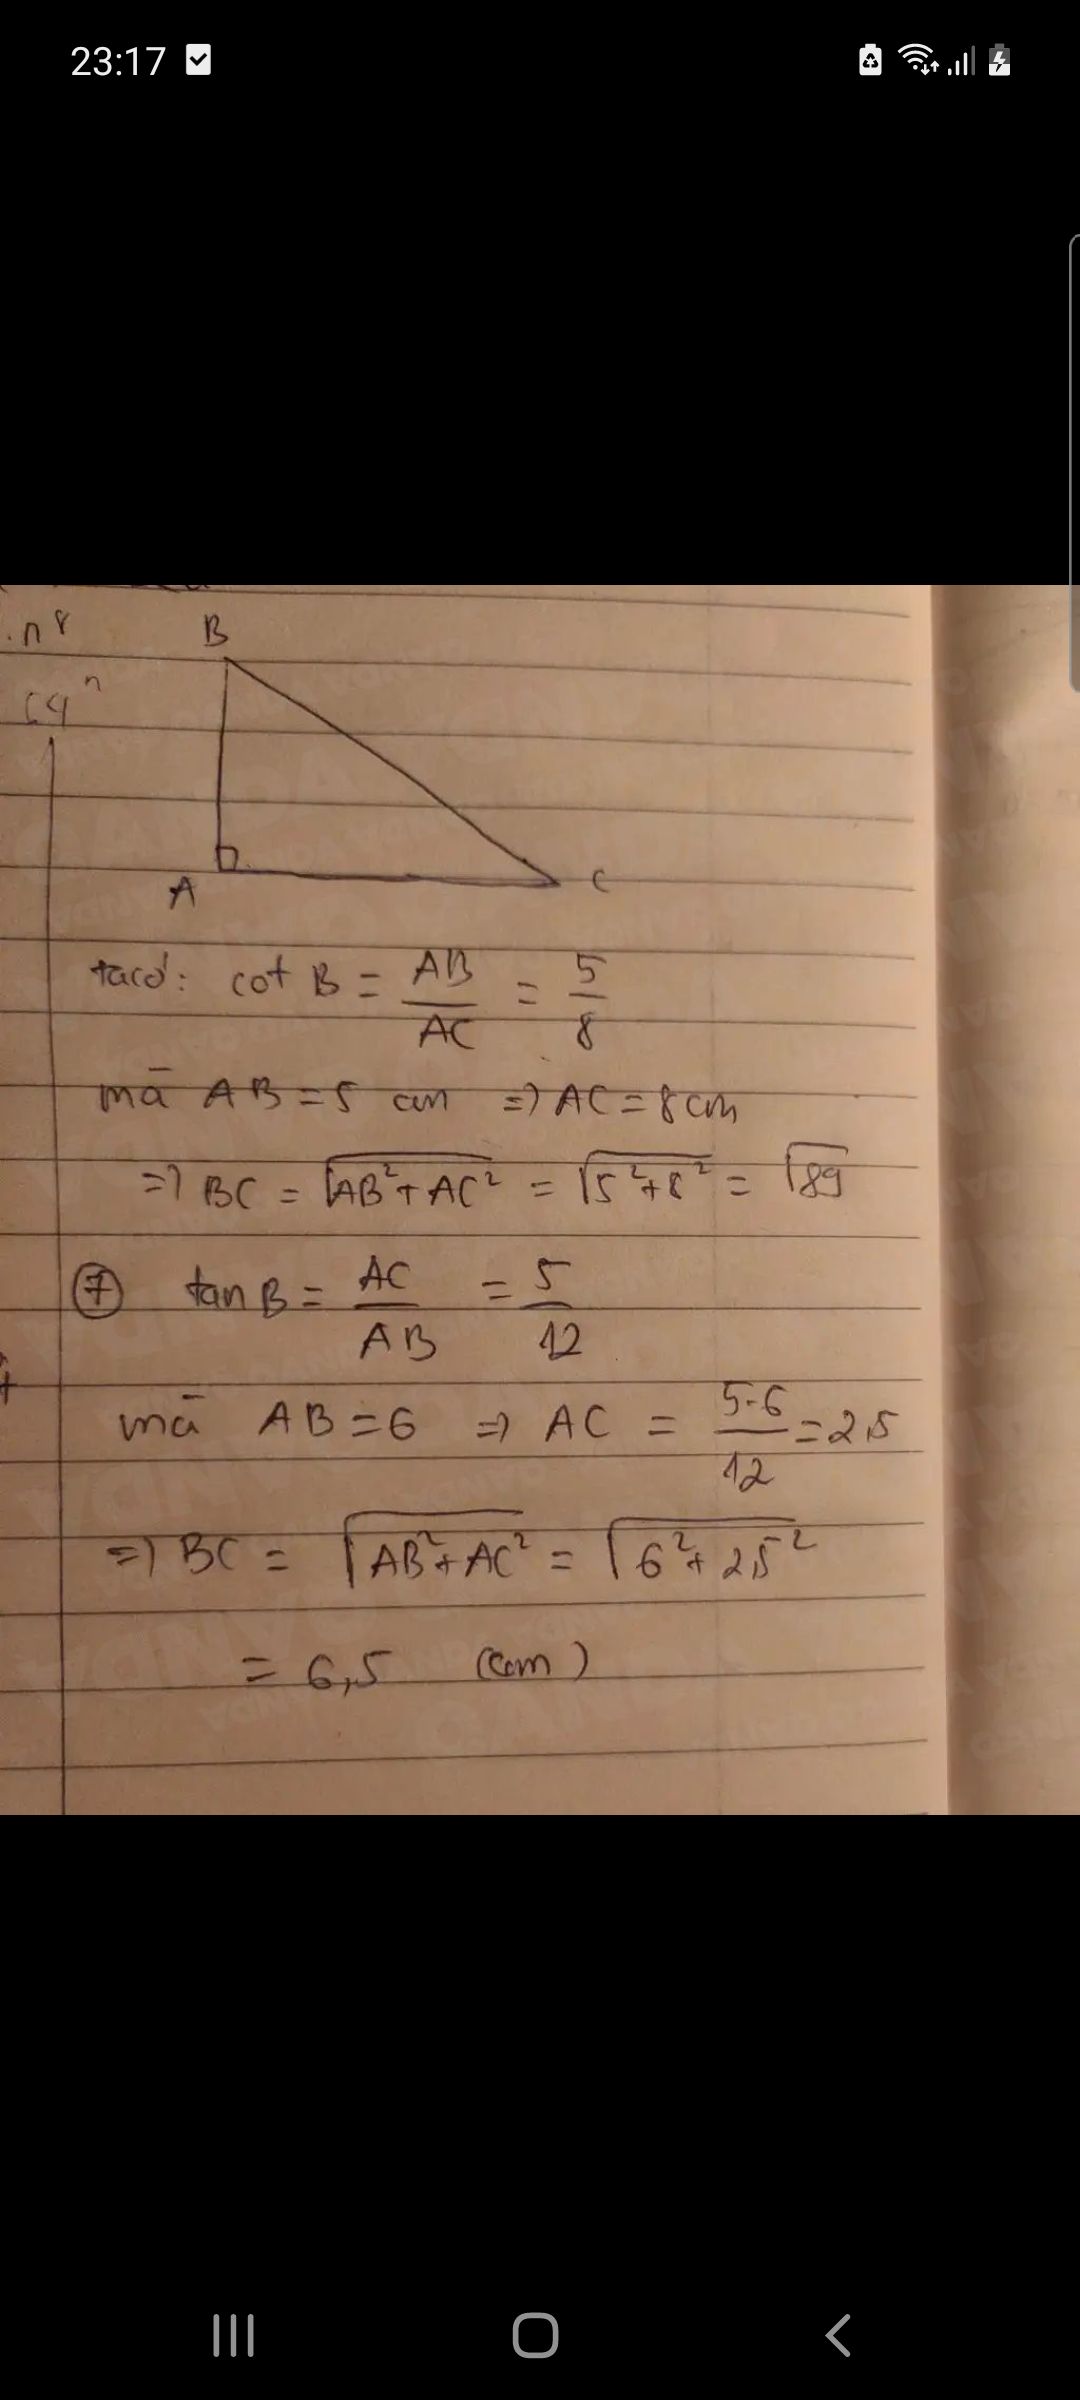 23:17
B
A
C
ta có: cot B = AB/AC = 5/8
mā AB = 5 cm => AC = 8cm
=> BC = √AB²+AC² = √5²+8² = √89
⑦ tan B = AC/AB = 5/12
mā AB = 6 => AC = 5.6/12 = 2,5
=> BC = √AB²+AC² = √6²+2,5²
= 6,5 (cm)